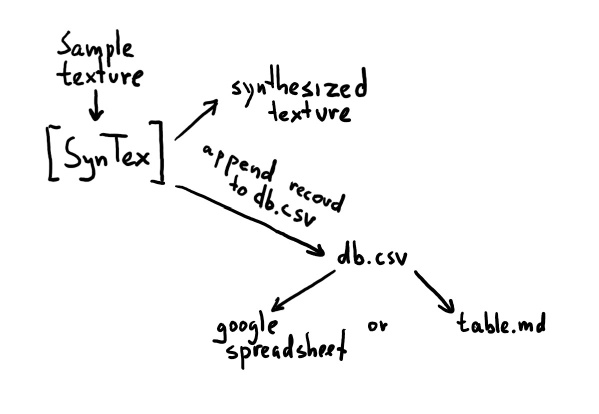 Sample
texture
[SynTex]
synthesized
texture
append record
to db.csv
db.csv
google
spreadsheet
or
table.md